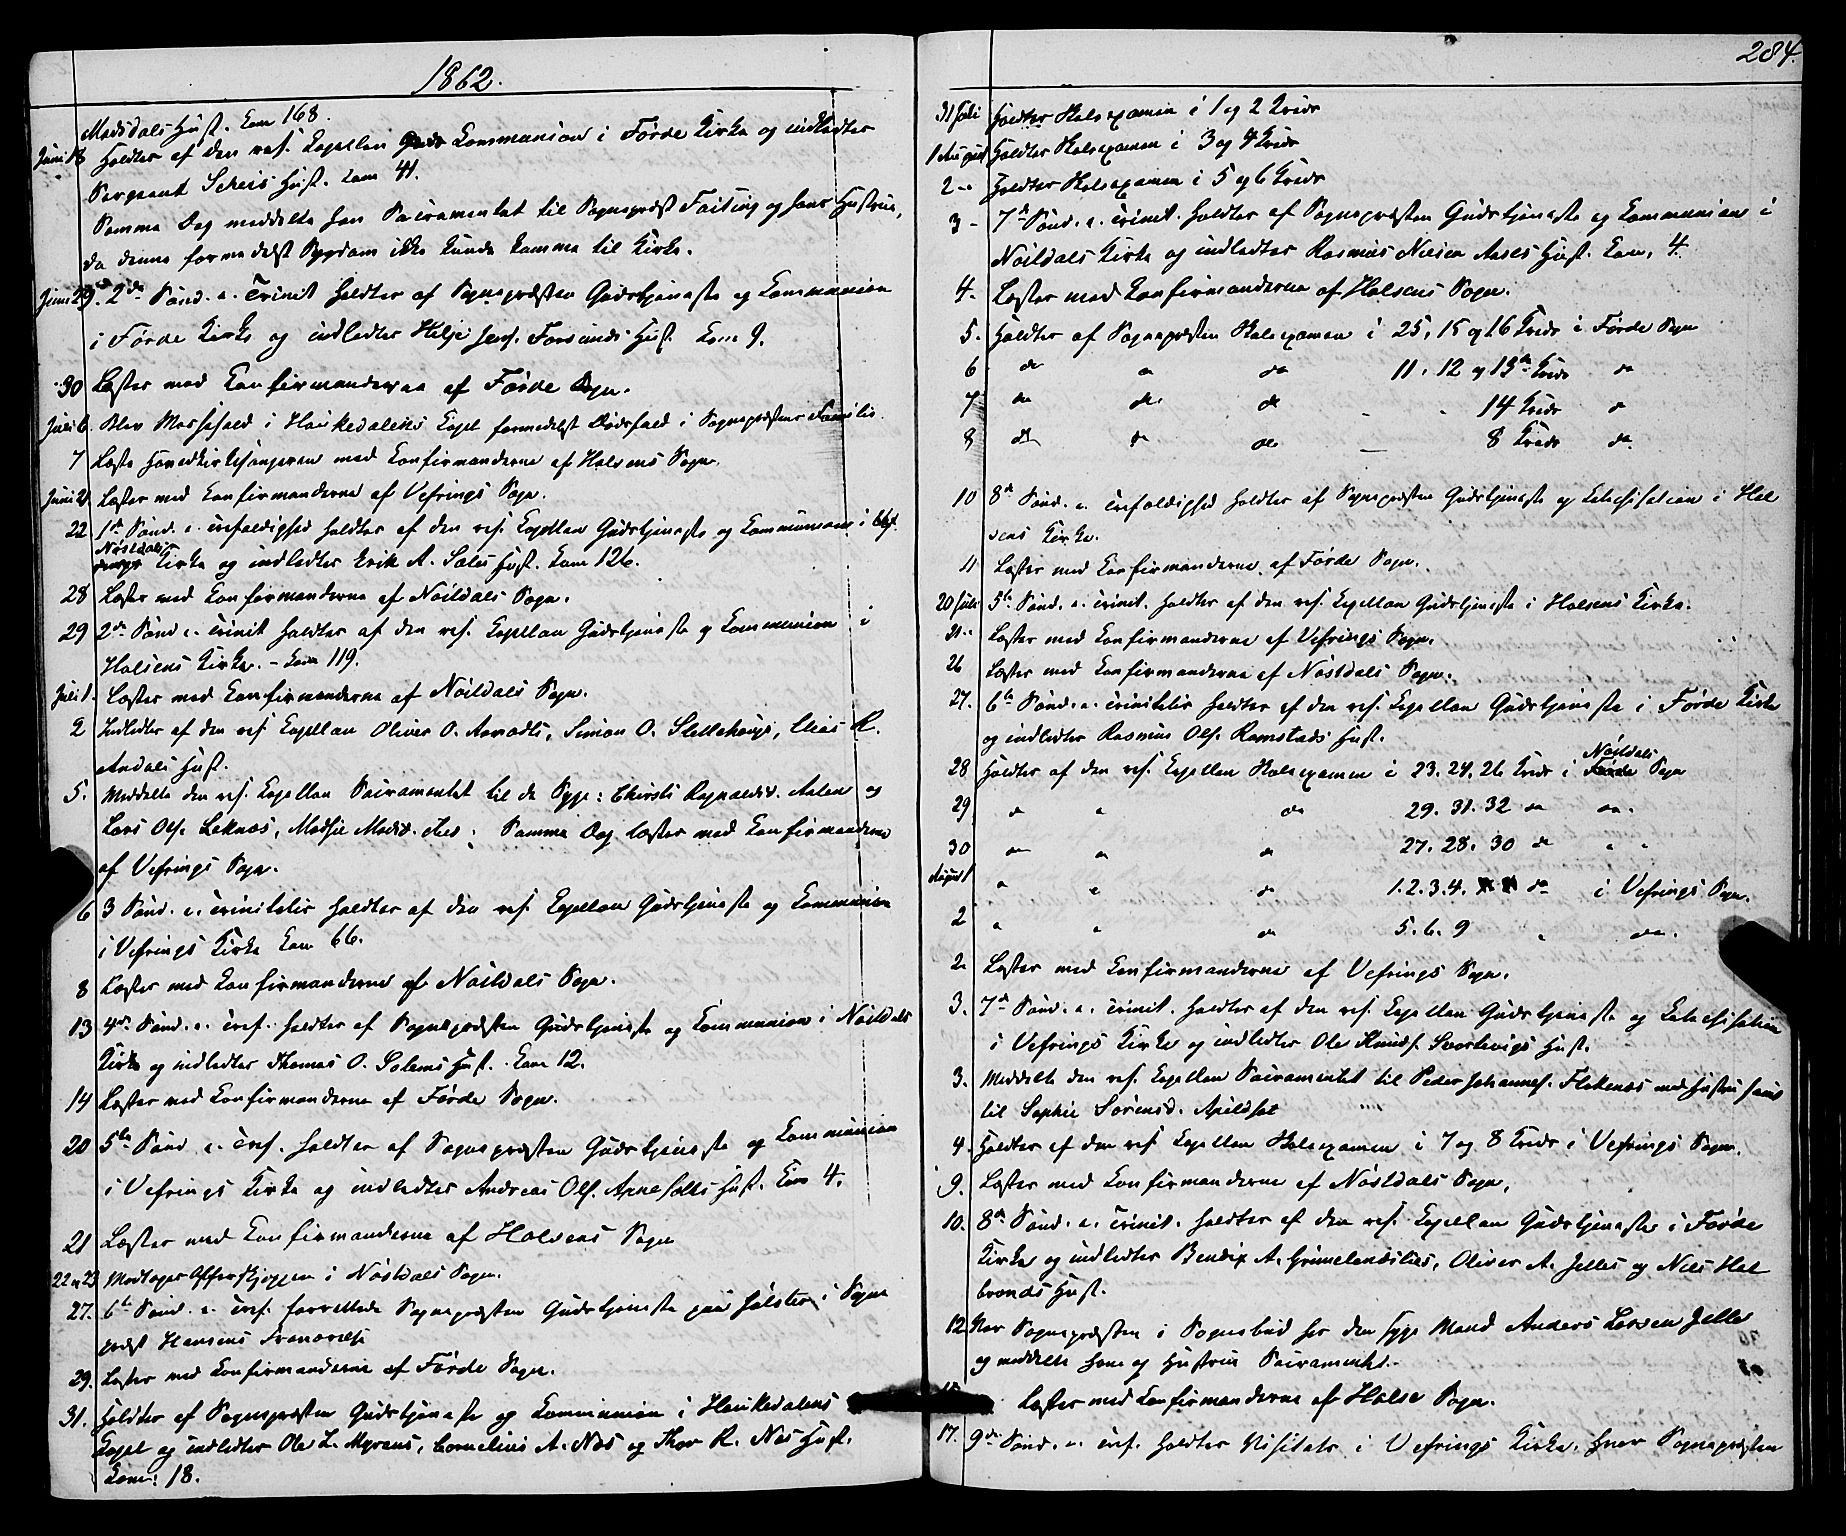 1862.
Madsdals Hust. Com 168.
Juni 18 Holdtes af den res. Capellan Communion i Førde Kirke og indledtes
Sergeant Scheis Hust. Com 41.
Samme Dag meddelte han Sacramentet til Sognepræst Faising og hans Hustrue,
da denne formedelst Sygdom ikke kunde komme til Kirke.
Juni 29. 2den Sønd. e. Trinit holdtes af Sognepræsten Gudstjeneste og Communion
i Førde Kirke og indledtes Helje Jens. Farsunds Hust. Com 9.
30 Læstes med Confirmanderne af Førde Sogn.
Juli 6. Blev Messefald i Haukedalens Capel formedelst Dødsfald i Sognepræstens Familie.
7 Læste Hovedkirkesangeren med Confirmanderne af Holsens Sogn.
Juni 21. Læstes med Confirmanderne af Vefrings Sogn.
22 1ste Sønd. e. Trefoldighed holdtes af den res. Capellan Gudstjeneste og Communion i
Nøstdals Kirke og indledtes Erik A. Soles Hust. Com 126.
28 Læstes med Confirmanderne af Nøstdals Sogn.
29 2den Sønd e. Trinit holdtes af den res. Capellan Gudstjeneste og Communion i
Holsens Kirke. - Com 119.
Juli 1. Læstes med Confirmanderne af Nøstdals Sogn.
2 Indledtes af den res. Capellan Oliver O. Aavodts, Simon O. Slettehougs, Elias R.
Andals Hust.
5. Meddelte den res. Capellan Sacramentet til de Syge: Christi Ragnaldsd. Aalen og
Lars Ols. Leknæs, Madsie Madsd. Aes; Samme Dag læstes med Confirmanderne
af Vefrings Sogn.
6 3 Sønd. e. Trinitatis holdtes af den res. Capellan Gudstjeneste og Communion
i Vefrings Kirke Com 66.
8 Læstes med Confirmanderne af Nøstdals Sogn.
13 4de Sønd. e. Tref. holdtes af Sognepræsten Gudstjeneste og Communion i Nøstdals
Kirke og indledtes Thomas O. Solems Hust. Com 12.
14 Læstes med Confirmanderne af Førde Sogn.
20 5te Sønd e. Tref. holdtes af Sognepræsten Gudstjeneste og Communion
i Vefrings Kirke og indledtes Andreas Ols. Arnesætts Hust. Com 4.
21 Læstes med Confirmanderne af Holsens Sogn
22 a 23 Modtages Offerskjæppen i Nøstdals Sogn.
27. 6te Sønd. e. Tref. forrettede Sognepræsten Gudstjeneste paa Jølster i Sogne
præst Hansens Fraværelse
29. Læstes med Confirmanderne af Førde Sogn.
31. Holdtes af Sognepræsten Gudstjeneste og Communion i Haukedalens
Capel og indledtes Ole L. Myrens, Cornelius A. Næs og Thor R. Næs Hust.
Com: 18.
284.
31 Juli Holdtes Skoleexamen i 1 og 2 Kreds
1 August Holdtes Skoleexamen i 3 og 4 Kreds
2 - Holdtes Skoleexamen i 5 og 6 Kreds
3 - 7de Sønd. e. Trinit. holdtes af Sognepræsten Gudstjeneste og Communion i
Nøstdals Kirke og indledtes Rasmus Nielsen Aases Hust. Com. 4.
4. Læstes med Confirmanderne af Holsens Sogn.
5. Holdtes af Sognepræsten Skoleexamen i 25, 15 og 16 Kreds i Førde Sogn
6 do do do 11. 12 og 13de Kreds do
7 do do do - - 14 Kreds do
8 do do do - 8 Kreds do.
10 8de Sønd. e. Trefoldighed holdtes af Sognepræsten Gudstjeneste og Catechisation i Hol
sens Kirke.
11 Læstes med Confirmanderne af Førde Sogn.
20 Juli 5te Sønd. e. Trinit. holdtes af den res. Capellan Gudstjeneste i Holsens Kirke.
21 " Læstes med Confirmanderne af Vefrings Sogn.
26 Læstes med Confirmanderne af Nøstdals Sogn.
27. 6te Sønd. e. Trinitatis holdtes af den res. Capellan Gudstjeneste i Førde Kirke
og indledtes Rasmus Ols. Ramstads Hust.
28 Holdtes af den res. Capellan Skoleexamen i 23. 24. 26 Kreds i Nøstdals Sogn
29 do " do 29. 31. 32 do do.
30 do do do 27. 28. 30 do " "
August 1 " " do 1. 2. 3. 4. do i Vefrings Sogn.
2 " " do 5. 6. 9 " do.
2. Læstes med Confirmanderne af Vefrings Sogn.
3. 7de Sønd. e. Trinit. holdtes af den res. Capellan Gudstjeneste og Catechisation
i Vefrings Kirke og indledtes Ole Knuds. Svortevigs Hust.
3. Meddelte den res. Capellan Sacramentet til Peder Johannes. Flekenæs med Hustru samt
til Sophie Sørensd. Apildset
4. Holdtes af den res. Capellan Skoleexamen i 7 og 8 Kreds i Vefrings Sogn.
9. Læstes med Confirmanderne af Nøstdals Sogn.
10. 8de Sønd. e. Trinit. holdtes af den res. Capellan Gudstjeneste i Førde
Kirke og indledtes Bendix A. Grimelandslies, Oliver A. Jelles og Niels Hal
brends Hust.
12 Var Sognepræsten i Sognebud hos den syge Mand Anders Larsen Jelle
og meddelte ham og Hustrue Sacramentet.
Læstes med Confirmanderne af Holse Sogn.
17. 9de Sønd. e. Tref. holdtes Visitats i Vefrings Kirke, hvor Sognepræsten